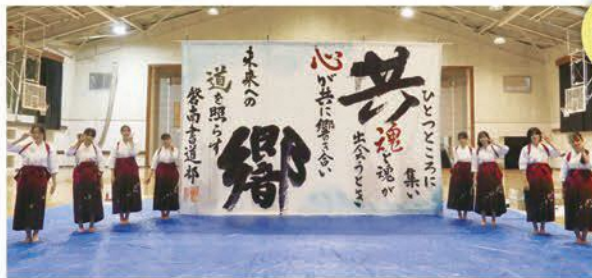 ひとつところに
集い
共
魂と魂が
出会うとき
心が共に響き合い
響
未来への
道を照らす
南書道部